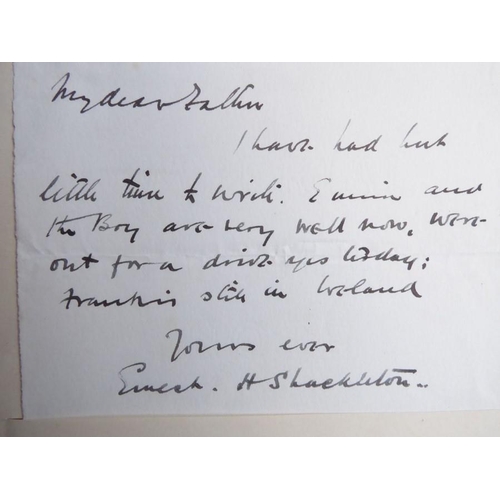 My dear Father
I have had but
little time to write. Emmie and
the Boy are very well now, were
out for a drive yesterday;
Frank is still in Ireland
Yours ever
Ernest. H Shackleton..